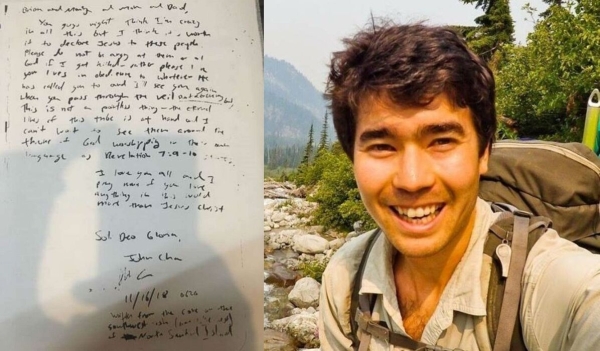 Brian and Mary and mom and Dad,
You guys might think I'm crazy
in all this but I think it's worth
is to declare Jesus to these people.
Please do not be angry at them or at
God if I get killed - rather please live
your lives in obedience to whatever He
has called you to and I'll see you again
when you pass through the veil
This is not a pointless thing - the eternal
lives of this tribe is at hand and I
can't wait to see them around the
throne of God worshipping in their own
language as Revelation 7:9-10
I love you all and I
pray none of you love
anything in this world
more than Jesus Christ
Soli Deo Gloria,
John Chau
11/16/18
from the cove on the
southwest
of North Sentinel Island